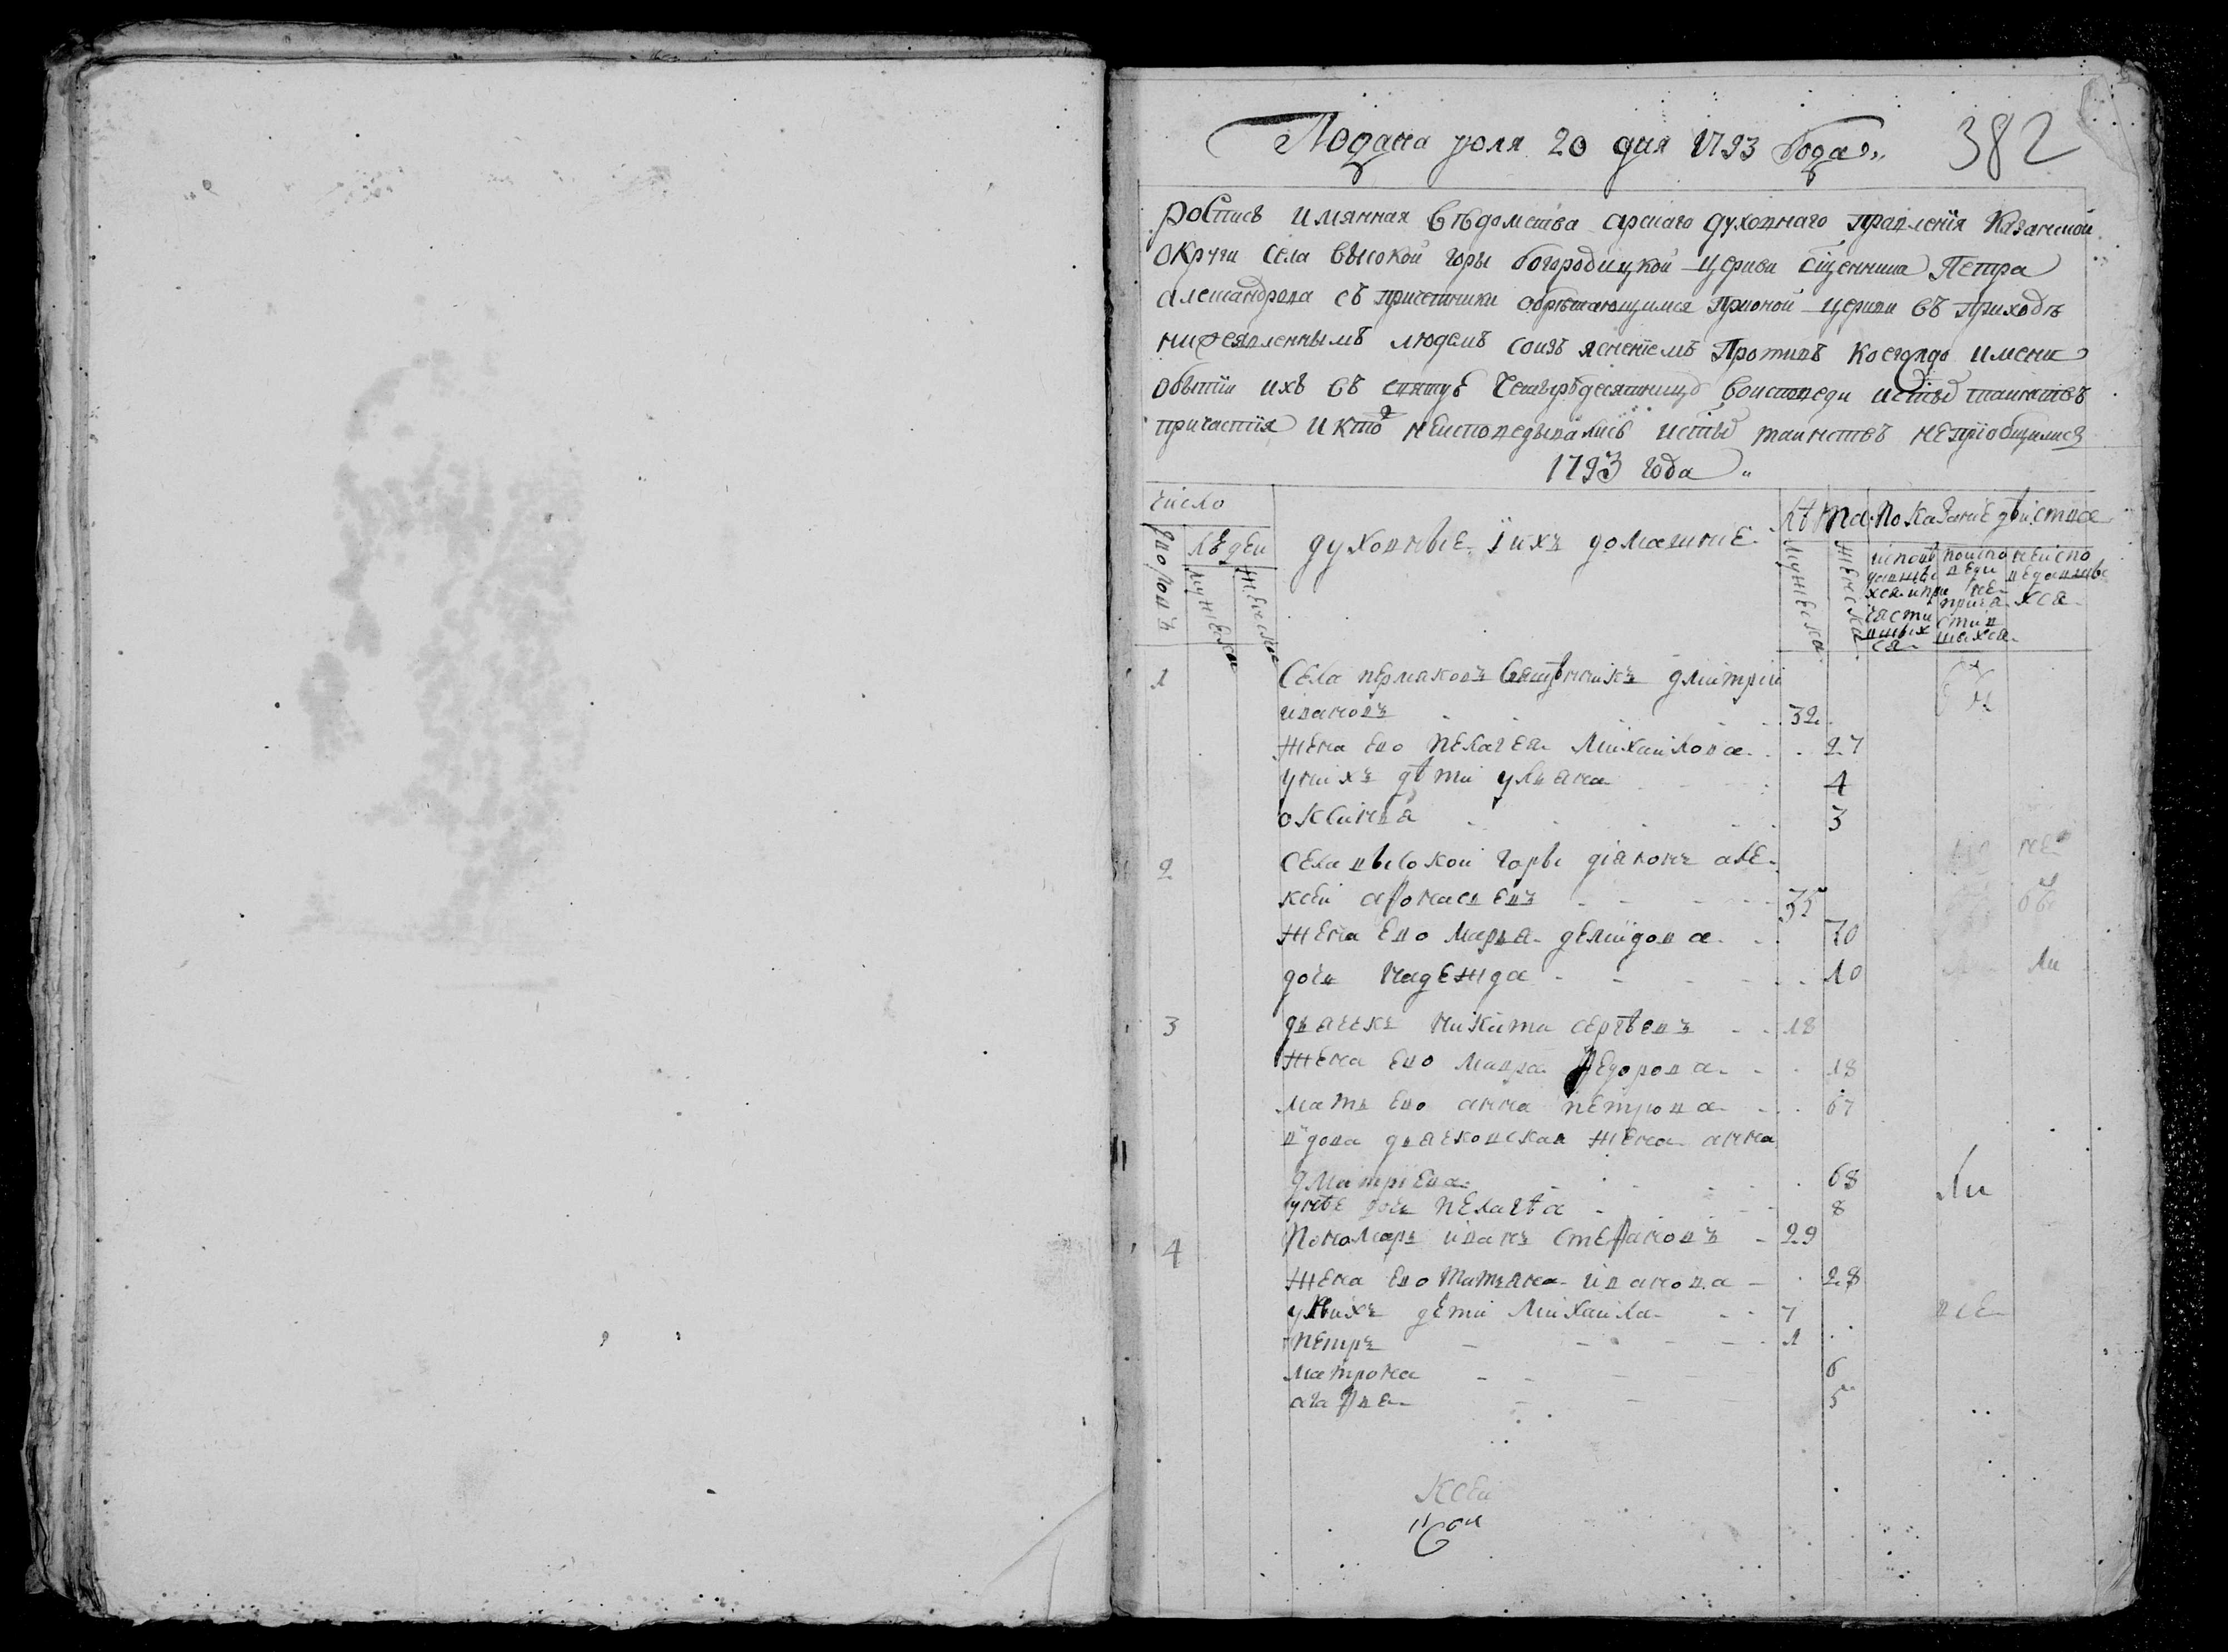 Подана июля 20 дня 1793 года
382
роспись имянная ведомства арскаго духовнаго правления Казанской
округи села высокой горы богородицкой церкви сщенника Петра
александрова съ причетники обретающимся прионой церкви въ приходе
нижеявленнымъ людемъ соизъяснениемъ Противъ коегождо имени
обытии ихъ въ святую Четыредесятницу воисповеди истых таинствъ
причастия икто неисповедывались истых таинствъ неприобщились
1793 года
число
дворовъ
людей
мужеска
женска
духовные ї ихъ домашние
лета
мужеска
женска
Показание действа
исповедавшихся и причастившихся
поисповеди не причастившихся
неисповедавшихся
1 села пермяковъ священникъ дмитрий
ивановъ 32
жена ево пелагея михаилова 27
уних дети ульяна 4
оксинья 3
2 села высокой горы дїаконъ але
ксей афонасьевъ 35 не
жена ево марья демидова 30
дочь надежда 10
3 дьячекъ никита сергеевъ 18
жена ево мавра федорова 18
мать ево анна петрова 67
вдова дьячковская жена анна
дмитриева 68
унее дочь пелагея 8
4 Пономарь иванъ стефановъ 29
жена ево татьяна иванова 28
униxъ дети михаила 7 все
петръ 1
матрона 6
агафья 5
ксей